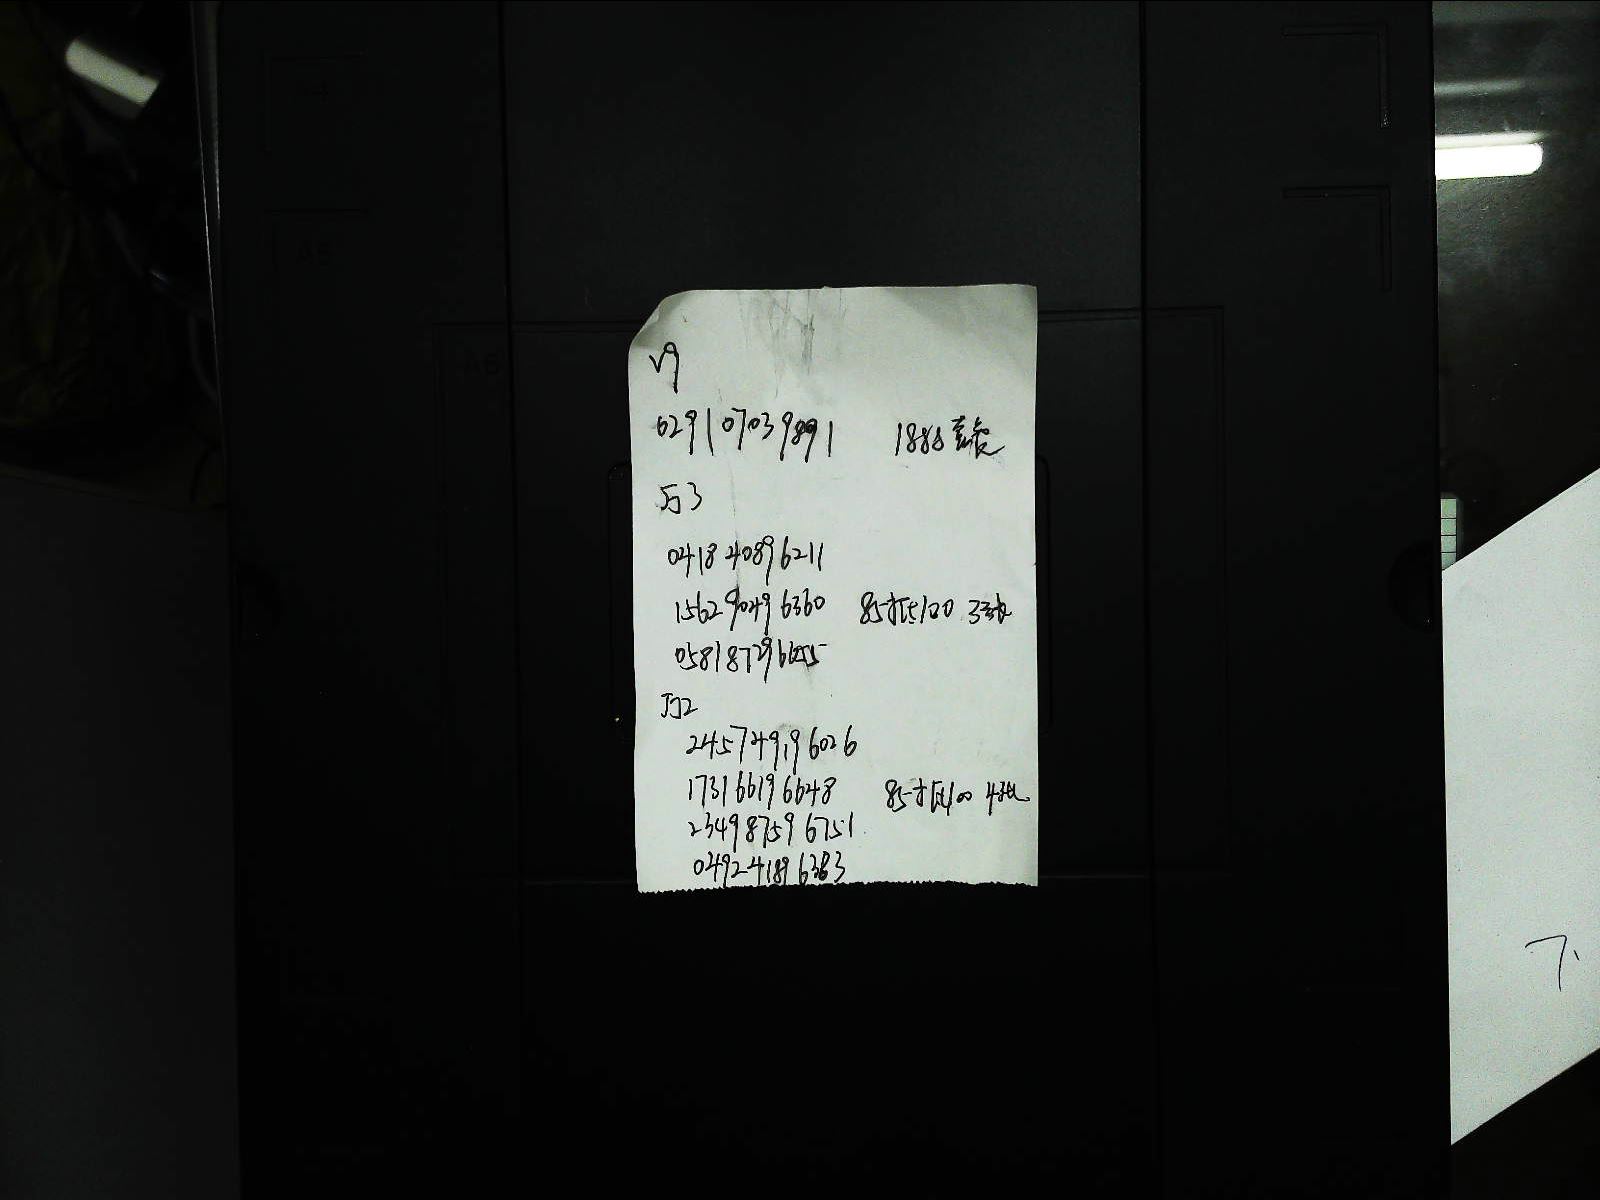 A4
A5
A6
V9
629107039891 1888套餐
JJ3
041840896211
156290496360 85抵100 3张
058187296655
JJ2
245749196026
173166196648 85抵100 4张
234987596751
049241896383
下